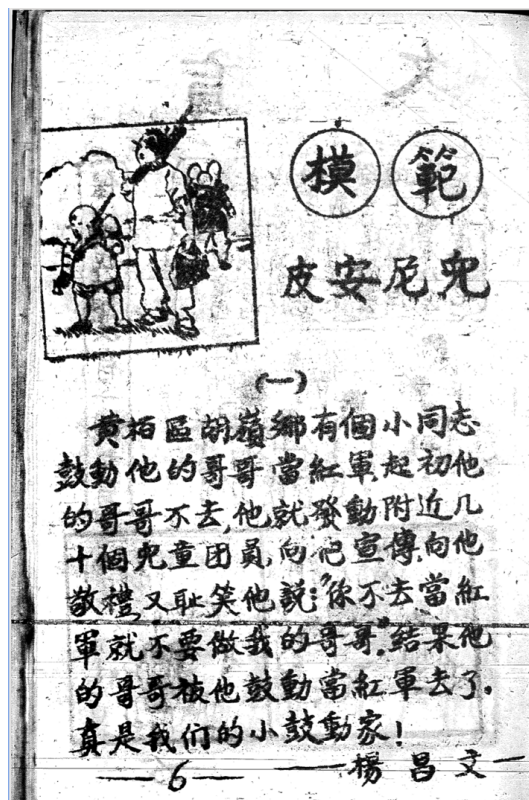 模範
皮安尼兒
(一)
黄柏區胡嶺鄉有個小同志
鼓動他的哥哥當紅軍,起初他
的哥哥不去,他就發動附近几
十個兒童团員,向他宣傳,向他
敬禮,又耻笑他説:"你不去當紅
軍就不要做我的哥哥"。結果他
的哥哥被他鼓動當紅軍去了。
真是我们的小鼓動家!
——楊昌文—
—6—